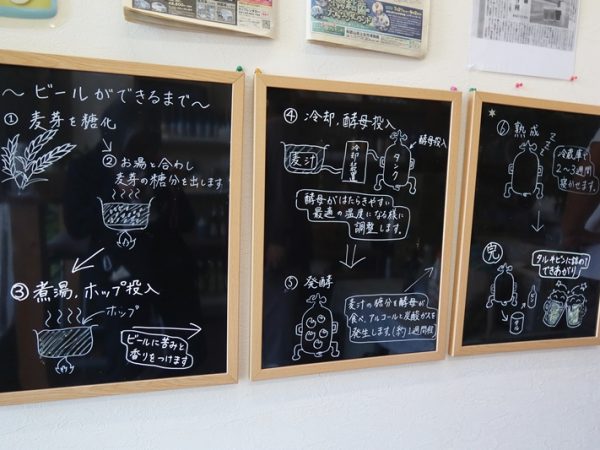 ～ビールができるまで～
① 麦芽を糖化
② お湯と合わし
麦芽の糖分を出します
③ 煮沸,ホップ投入
ホップ
ビールに苦みと
香りをつけます
④ 冷却,酵母投入
麦汁
冷却装置
タンク
酵母投入
酵母がはたらきやすい
最適の温度になる様に
調整します。
⑤ 発酵
麦汁の糖分を酵母が
食べ、アルコールと炭酸ガスを
発生します。(約1週間程)
⑥ 熟成
zzz
冷蔵庫で
2～3週間
寝かせます。
完
タルやビンに詰めて
できあがり♪